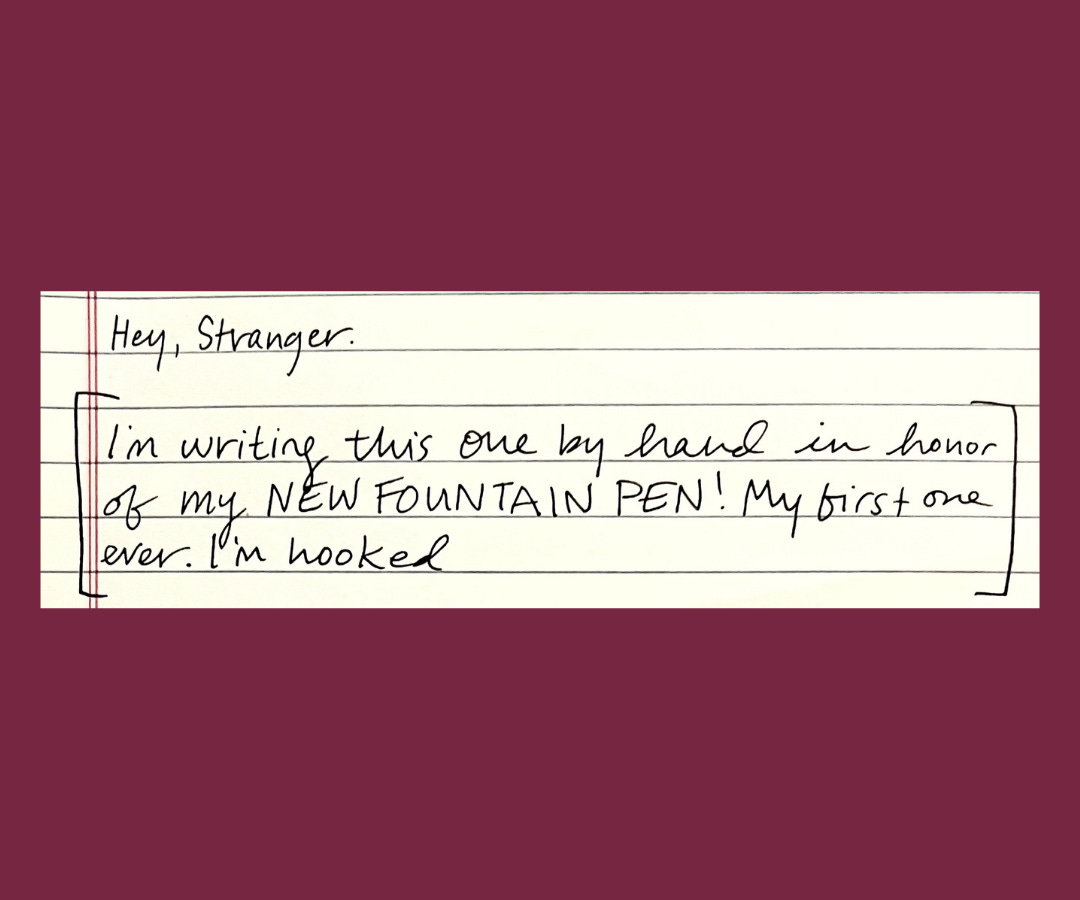 Hey, Stranger.
[I'm writing this one by hand in honor
of my NEW FOUNTAIN PEN! My first one
ever. I'm hooked]